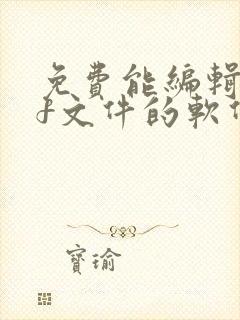 免費能編輯
f文件的軟
寶瑜